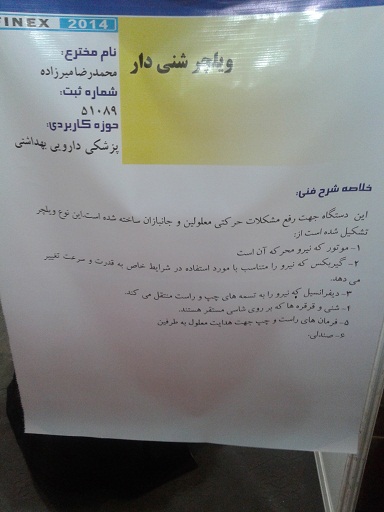 FINEX 2014
نام مخترع:
محمدرضا میرزاده
شماره ثبت:
۵۱۰۸۹
حوزه کاربردی:
پزشکی دارویی بهداشتی
ویلچر شنی دار
خلاصه شرح فنی:
این دستگاه جهت رفع مشکلات حرکتی معلولین و جانبازان ساخته شده است.این نوع ویلچر
تشکیل شده است از:
۱- موتور که نیرو محرکه آن است
۲- گیربکس که نیرو را متناسب با مورد استفاده در شرایط خاص به قدرت و سرعت تغییر
می دهد.
۳- دیفرانسیل که نیرو را به تسمه های چپ و راست منتقل می کند.
۴- شنی و قرقره ها که بر روی شاسی مستقر هستند.
۵- فرمان های راست و چپ جهت هدایت معلول به طرفین
۶- صندلی.